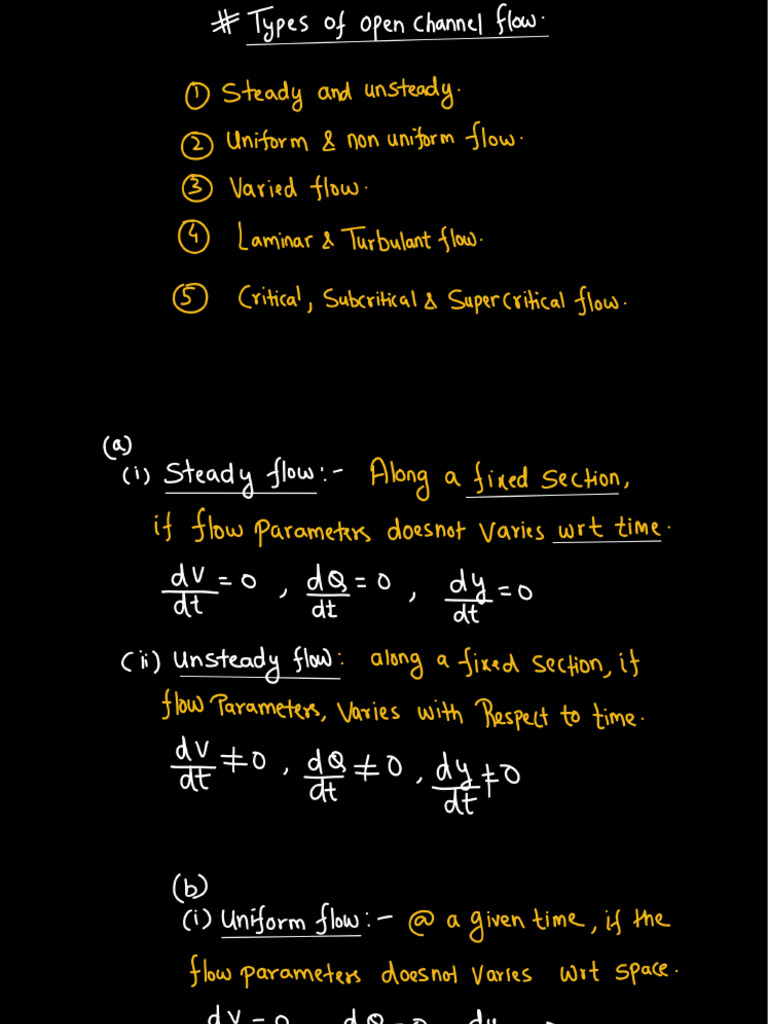 # Types of open channel flow.
① Steady and unsteady.
② Uniform & non uniform flow.
③ Varied flow.
④ Laminar & Turbulant flow.
⑤ Critical, Subcritical & Supercritical flow.
(a)
(i) Steady flow :- Along a fixed section,
if flow parameters doesnot varies wrt time.
dV/dt = 0 , dQ/dt = 0 , dy/dt = 0
(ii) Unsteady flow : along a fixed section, if
flow Parameters, varies with Respect to time.
dV/dt ≠ 0 , dQ/dt ≠ 0 , dy/dt ≠ 0
(b)
(i) Uniform flow :- @ a given time, if the
flow parameters doesnot varies wrt space.
dV = 0 dQ dy